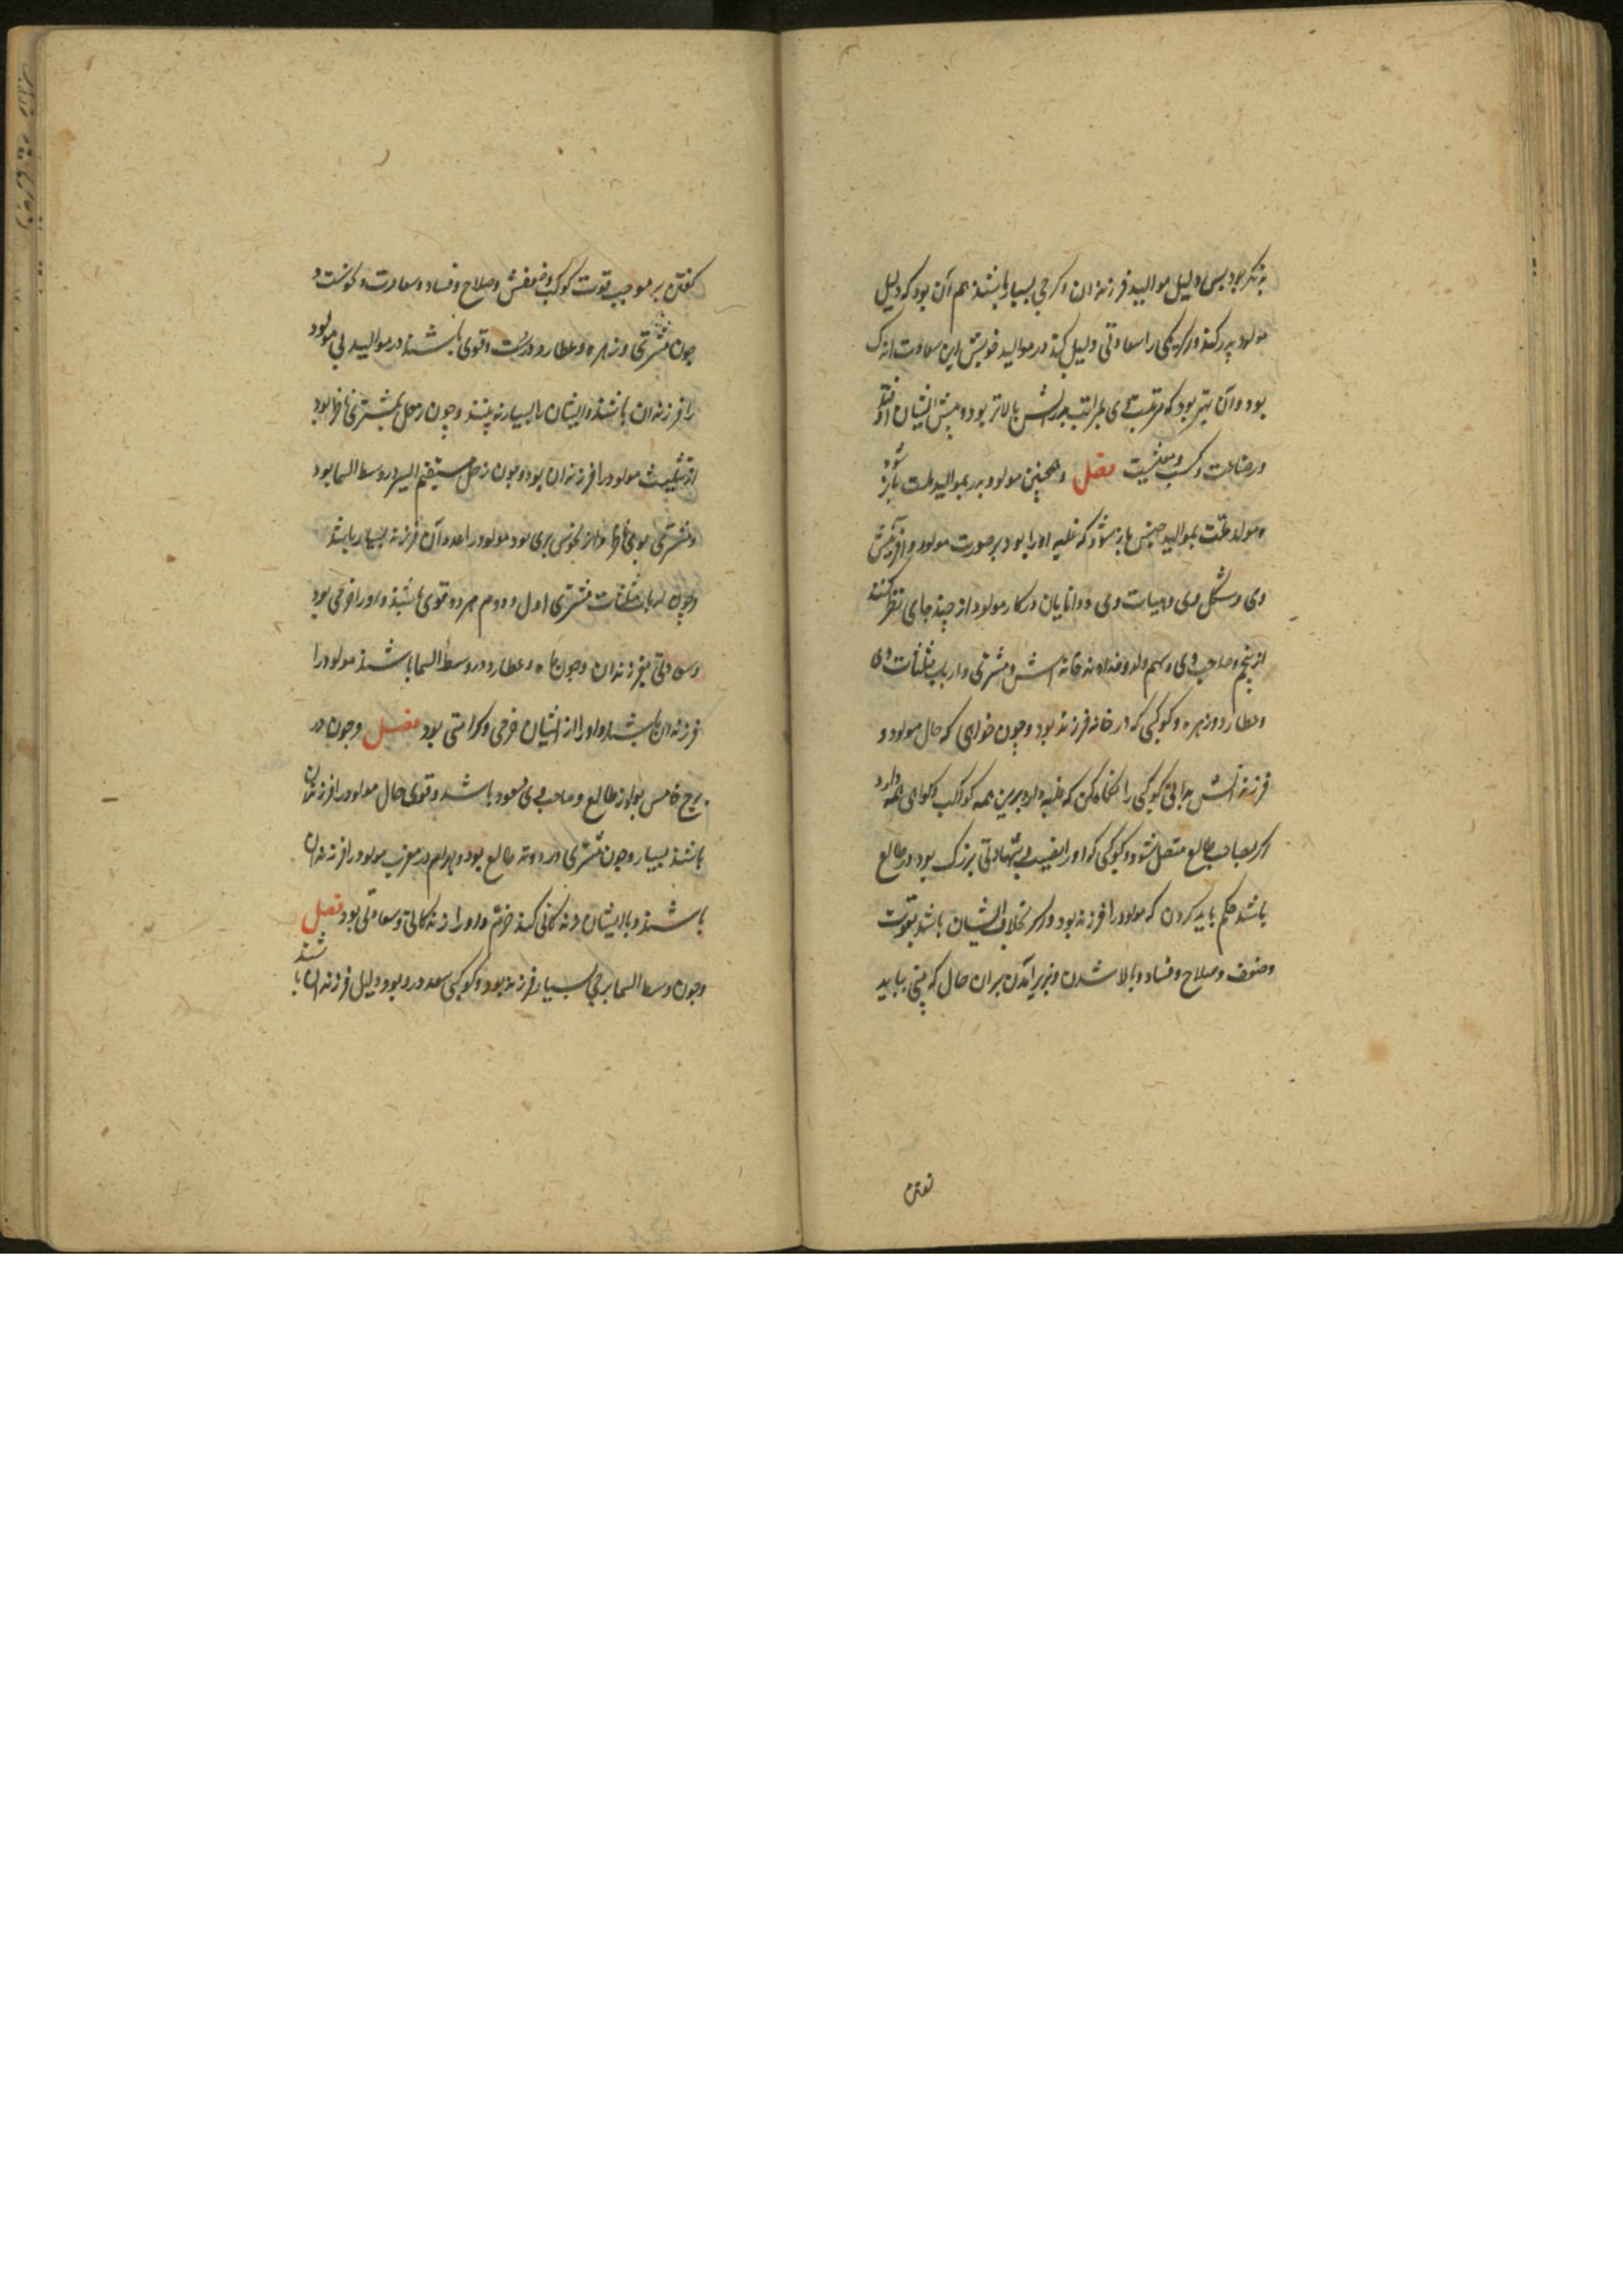 بود پس دلیل موالید فرزندان اکرچی بسیار باشند هم آن بود که دلیل
مولود پدر کند و اکر یکی را سعادتی دلیل کند در موالید خویش این سعادت اندک
بود و آن بهتر بود که مرتبت وی بمراتب پدرش بالاتر بود و پیش ایشان افتد
در صناعت و کسب و معیشت فصل و همچنین مولود پدر بموالید علت باز شود
و مولد علت بموالید جنس باز شود که غلبه او را بود بر صورت مولود و افرینش
وی و شکل وی و هیات وی و دانایان در کار مولود از چند جای نظر کنند
از پنجم و صاحب وی و سهم ولد و خداوند خانه اش و مشتری و ارباب مثلثات وی
و عطارد و زهره و کوکبی که در خانه فرزند بود و چون خواهی که حال مولود و
فرزندانش بدانی کوکبی را نکاه کن که غلبه دارد برین همه کواکب و کواهی همه دارد
اکر بصاحب طالع متصل شود و کوکبی که او را نصیب و شهادتی بزرک بود در طالع
باشد حکم باید کردن که مولود را فرزند بود و اکر بخلاف ایشان باشد بقوت
و ضعف و صلاح و فساد و بالا شدن و بزیر آمدن بر ان حال که بینی بباید
کفتن
کفتن بر موجب قوت کوکب و ضعفش و صلاح و فساد و سعادت و نحوست و
چون مشتری و زهره و عطارد درست و قوی باشند در موالید بی مولود
را فرزندان باشند و ایشان را بسیار نه بینند و چون زحل بمشتری ناظر بود
از تثلیث مولود را فرزندان بود و چون زحل مستقیم السیر در وسط السما بود
و مشتری بوی ناظر و از نحوس بری بود مولود را عدد آن فرزند بسیار باشد
و چون ارباب مثلثات مشتری اول و دوم هر دو قوی باشند و او را فرخی بود
و سعادتی بفرزندان و چون ماه و عطارد در وسط السما باشند مولود را
فرزندان باشند و او را از ایشان فرخی و کرامتی بود فصل و چون در
برج خامس بود از طالع و صاحب وی سعود باشد و قوی حال مولود را فرزندان
باشند بسیار و چون مشتری در وتد طالع بود و بهرام در مغرب مولود را فرزندان
باشند و با ایشان زندکانی کند خرّم و او را زندکانی و سعادتی بود فصل
و چون وسط السما برجی بسیار فرزند بود و کوکبی سعد درو بود دلیل فرزندان باشند